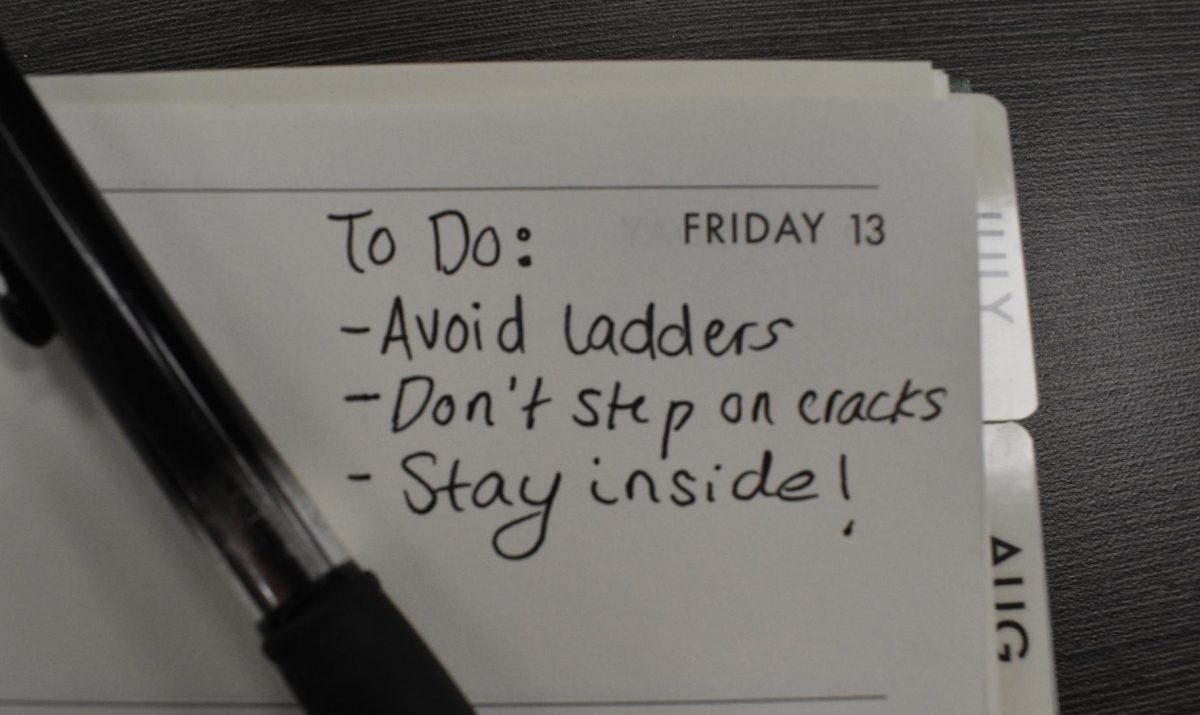 To Do: FRIDAY 13
-Avoid ladders
-Don't step on cracks
- Stay inside!
JULY
AUG